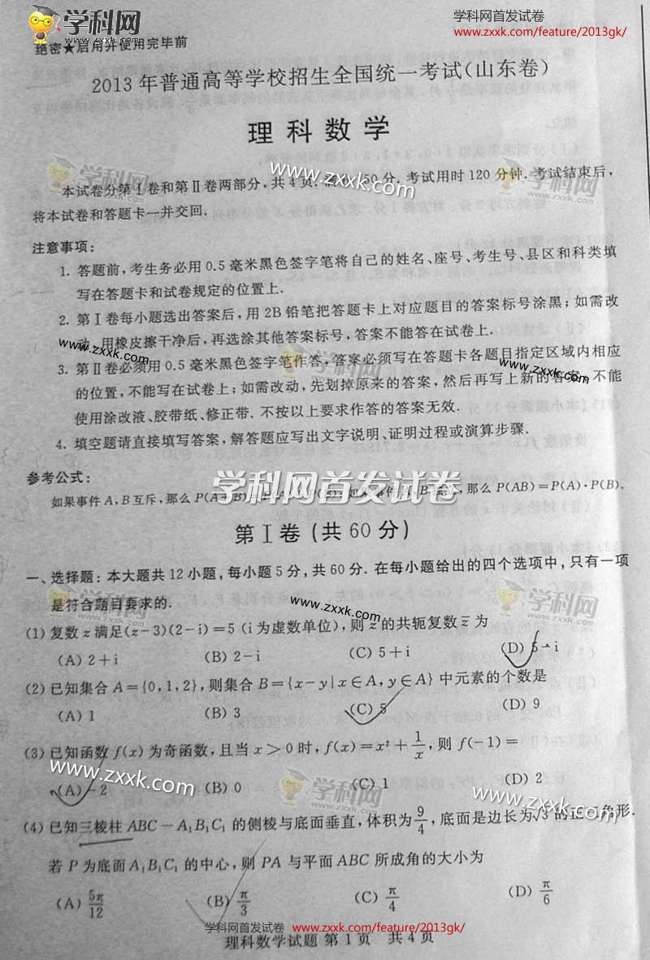 学科网
学科网首发试卷
www.zxxk.com/feature/2013gk/
绝密★启用并使用完毕前
2013年普通高等学校招生全国统一考试(山东卷)
理科数学
学科网 www.zxxk.com 学科网
本试卷分第Ⅰ卷和第Ⅱ卷两部分,共4页. 150分,考试用时120分钟.考试结束后,
将本试卷和答题卡一并交回.
注意事项:
1. 答题前,考生务必用0.5毫米黑色签字笔将自己的姓名、座号、考生号、县区和科类填
写在答题卡和试卷规定的位置上.
2. 第Ⅰ卷每小题选出答案后,用2B铅笔把答题卡上对应题目的答案标号涂黑;如需改
动,用橡皮擦干净后,再选涂其他答案标号,答案不能答在试卷上.
www.zxxk.com 学科网 www.zxxk.com
3. 第Ⅱ卷必须用0.5毫米黑色签字笔作答,答案必须写在答题卡各题目指定区域内相应
的位置,不能写在试卷上;如需改动,先划掉原来的答案,然后再写上新的答案,不能
使用涂改液、胶带纸、修正带.不按以上要求作答的答案无效.
4. 填空题请直接填写答案,解答题应写出文字说明、证明过程或演算步骤.
参考公式:
学科网首发试卷
如果事件A,B互斥,那么P(A 那么P(AB)=P(A)·P(B).
第Ⅰ卷(共60分)
一、选择题:本大题共12小题,每小题5分,共60分.在每小题给出的四个选项中,只有一项
是符合题目要求的.
www.zxxk.com 学科网
(1) 复数z满足(z-3)(2-i)=5(i为虚数单位),则z的共轭复数z̅为
(A) 2+i (B) 2-i (C) 5+i (D) 5-i
(2) 已知集合A={0,1,2},则集合B={x-y|x∈A,y∈A}中元素的个数是
(A) 1 (B) 3 (C) 5 (D) 9
(3) 已知函数f(x)为奇函数,且当x>0时,f(x)=x²+1/x,则f(-1)=
www.zxxk.com 学科网 www.zxxk.com
(A) -2 (B) 0 (C) 1 (D) 2
(4) 已知三棱柱ABC-A₁B₁C₁的侧棱与底面垂直,体积为9/4,底面是边长为√3的正三角形.
若P为底面A₁B₁C₁的中心,则PA与平面ABC所成角的大小为
(A) 5π/12 (B) π/3 (C) π/4 (D) π/6
学科网首发试卷 www.zxxk.com/feature/2013gk/
理科数学试题 第1页 共4页